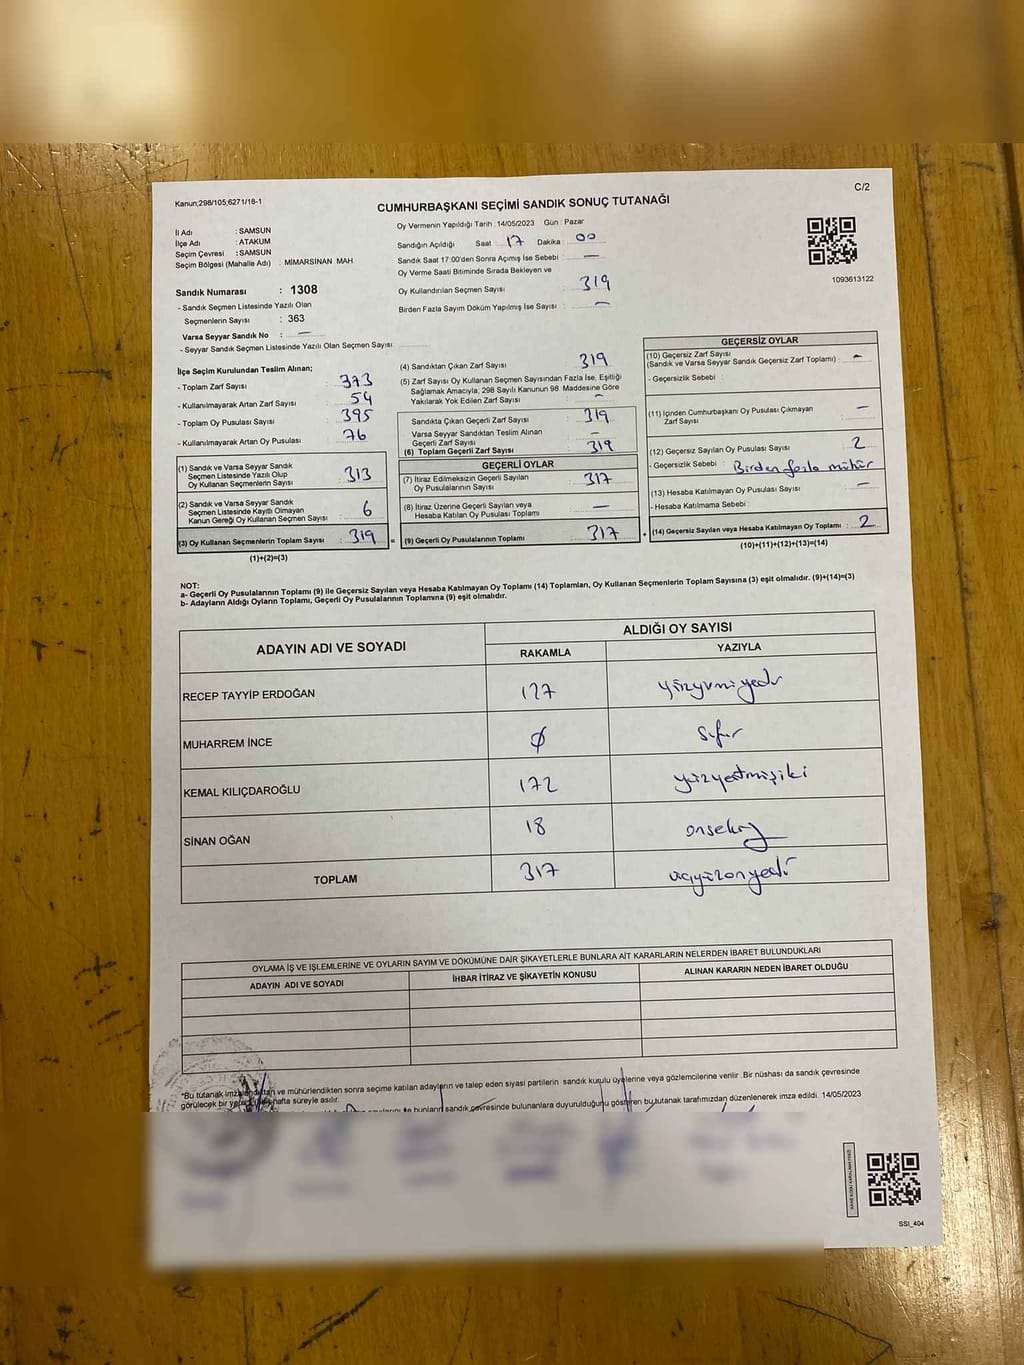 Kanun;298/105,6271/16-1
C/2
CUMHURBAŞKANI SEÇİMİ SANDIK SONUÇ TUTANAĞI
İl Adı : SAMSUN
İlçe Adı : ATAKUM
Seçim Çevresi : SAMSUN
Seçim Bölgesi (Mahalle Adı) : MİMARSİNAN MAH.
Sandık Numarası : 1308
- Sandık Seçmen Listesinde Yazılı Olan
Seçmenlerin Sayısı : 363
Varsa Seyyar Sandık No : —
- Seyyar Sandık Seçmen Listesinde Yazılı Olan Seçmen Sayısı:
Oy Vermenin Yapıldığı Tarih :14/05/2023 Gün : Pazar
Sandığın Açıldığı Saat : 17 Dakika : 00
Sandık Saat 17:00'den Sonra Açımış İse Sebebi : —
Oy Verme Saati Bitiminde Sırada Bekleyen ve
Oy Kullandırılan Seçmen Sayısı : 319
Birden Fazla Sayım Döküm Yapılmış İse Sayısı : —
1093613122
İlçe Seçim Kurulundan Teslim Alınan;
- Toplam Zarf Sayısı : 373
- Kullanılmayarak Artan Zarf Sayısı : 54
- Toplam Oy Pusulası Sayısı : 395
- Kullanılmayarak Artan Oy Pusulası : 76
(1) Sandık ve Varsa Seyyar Sandık
Seçmen Listesinde Yazılı Olup
Oy Kullanan Seçmenlerin Sayısı : 313
(2) Sandık ve Varsa Seyyar Sandık
Seçmen Listesinde Kayıtlı Olmayan
Kanun Gereği Oy Kullanan Seçmen Sayısı : 6
(3) Oy Kullanan Seçmenlerin Toplam Sayısı : 319
(1)+(2)=(3)
(4) Sandıktan Çıkan Zarf Sayısı : 319
(5) Zarf Sayısı Oy Kullanan Seçmen Sayısından Fazla İse, Eşitliği
Sağlamak Amacıyla; 298 Sayılı Kanunun 98. Maddesine Göre
Yakılarak Yok Edilen Zarf Sayısı : —
Sandıkta Çıkan Geçerli Zarf Sayısı : 319
Varsa Seyyar Sandıktan Teslim Alınan
Geçerli Zarf Sayısı : —
(6) Toplam Geçerli Zarf Sayısı : 319
GEÇERLİ OYLAR
(7) İtiraz Edilmeksizin Geçerli Sayılan
Oy Pusulalarının Sayısı : 317
(8) İtiraz Üzerine Geçerli Sayılan veya
Hesaba Katılan Oy Pusulası Toplamı : —
= (9) Geçerli Oy Pusulalarının Toplamı : 317
GEÇERSİZ OYLAR
(10) Geçersiz Zarf Sayısı
(Sandık ve Varsa Seyyar Sandık Geçersiz Zarf Toplamı) : —
- Geçersizlik Sebebi :
(11) İçinden Cumhurbaşkanı Oy Pusulası Çıkmayan
Zarf Sayısı : —
(12) Geçersiz Sayılan Oy Pusulası Sayısı : 2
- Geçersizlik Sebebi : Birden fazla mühür
(13) Hesaba Katılmayan Oy Pusulası Sayısı : —
- Hesaba Katılmama Sebebi :
+ (14) Geçersiz Sayılan veya Hesaba Katılmayan Oy Toplamı : 2
(10)+(11)+(12)+(13)=(14)
NOT:
a- Geçerli Oy Pusulalarının Toplamı (9) ile Geçersiz Sayılan veya Hesaba Katılmayan Oy Toplamı (14) Toplamları, Oy Kullanan Seçmenlerin Toplam Sayısına (3) eşit olmalıdır. (9)+(14)=(3)
b- Adayların Aldığı Oyların Toplamı, Geçerli Oy Pusulalarının Toplamına (9) eşit olmalıdır.
ADAYIN ADI VE SOYADI
ALDIĞI OY SAYISI
RAKAMLA YAZIYLA
RECEP TAYYİP ERDOĞAN 127 yüzyirmiyedi
MUHARREM İNCE Ø Sıfır
KEMAL KILIÇDAROĞLU 172 yüzyetmişiki
SİNAN OĞAN 18 onsekiz
TOPLAM 317 üçyüzonyedi
OYLAMA İŞ VE İŞLEMLERİNE VE OYLARIN SAYIM VE DÖKÜMÜNE DAİR ŞİKAYETLERLE BUNLARA AİT KARARLARIN NELERDEN İBARET BULUNDUKLARI
ADAYIN ADI VE SOYADI İHBAR İTİRAZ VE ŞİKAYETİN KONUSU ALINAN KARARIN NEDEN İBARET OLDUĞU
"Bu tutanak ve mühürlendikten sonra seçime katılan adayların ve talep eden siyasi partilerin sandık kurulu üyelerine veya gözlemcilerine verilir .Bir nüshası da sandık çevresinde
görülecek bir hafta süreyle asılır.
bunların sandık çevresinde bulunanlara duyurulduğunu gösteren bu tutanak tarafımızdan düzenlenerek imza edildi. 14/05/2023
SSI_404